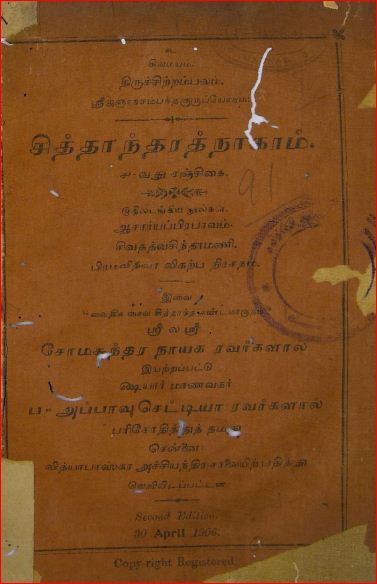 உ
சிவமயம்.
திருச்சிற்றம்பலம்.
ஸ்ரீஞானசம்பந்தகுருப்யோநம:
சித்தாந்தரத்நாகரம்.
௪-வது சஞ்சிகை.
91
இதிலடங்கிய நூல்கள்
ஆசார்யப்பிரபாவம்.
சிவதத்வசிந்தாமணி.
பிரமவித்யா விகற்ப நிரசநம்.
இவை
"வைதிக சைவ சித்தாந்த சண்டமாருதம்"
ஸ்ரீ ல ஸ்ரீ
சோமசுந்தர நாயக ரவர்களால்
இயற்றப்பட்டு
ஷையார் மாணவகர்
ப-அப்பாவுசெட்டியா ரவர்களால்
பரிசோதித்துத் தமது
சென்னை:
வித்யாபாஸ்கர அச்சியந்திரசாலையிற்பதிக்து
வெளியிடப்பட்டன
Second Edition.
30 April 1906.
Copy-right Registered.